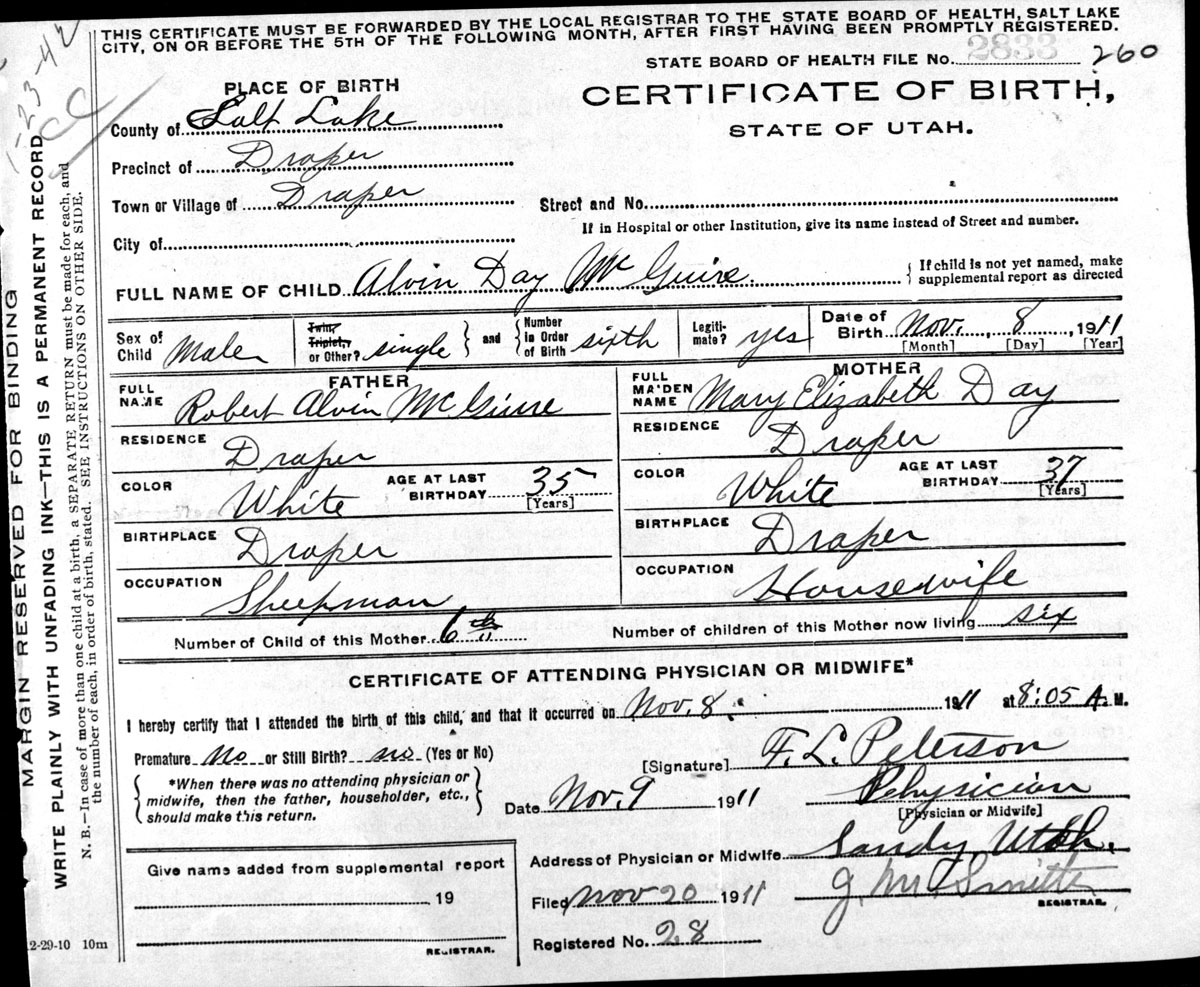 THIS CERTIFICATE MUST BE FORWARDED BY THE LOCAL REGISTRAR TO THE STATE BOARD OF HEALTH, SALT LAKE
CITY, ON OR BEFORE THE 5TH OF THE FOLLOWING MONTH, AFTER FIRST HAVING BEEN PROMPTLY REGISTERED.
STATE BOARD OF HEALTH FILE No. 2833 260
1-23-42
CC
MARGIN RESERVED FOR BINDING
WRITE PLAINLY WITH UNFADING INK—THIS IS A PERMANENT RECORD
N. B.—In case of more than one child at a birth, a SEPARATE RETURN must be made for each, and
the number of each, in order of birth, stated. SEE INSTRUCTIONS ON OTHER SIDE.
PLACE OF BIRTH
CERTIFICATE OF BIRTH,
STATE OF UTAH.
County of Salt Lake
Precinct of Draper
Town or Village of Draper
Street and No.
If in Hospital or other Institution, give its name instead of Street and number.
City of
FULL NAME OF CHILD Alvin Day McGuire.
If child is not yet named, make
supplemental report as directed
Sex of
Child Male
Twin,
Triplet,
or Other? single
and
Number
in Order
of Birth sixth
Legiti-
mate? yes
Date of
Birth Nov. 8, 1911
[Month] [Day] [Year]
FATHER
FULL
NAME Robert Alvin McGuire
MOTHER
FULL
MAIDEN
NAME Mary Elizabeth Day
RESIDENCE Draper
RESIDENCE Draper
COLOR White
AGE AT LAST
BIRTHDAY 35
[Years]
COLOR White
AGE AT LAST
BIRTHDAY 37
[Years]
BIRTHPLACE Draper
BIRTHPLACE Draper
OCCUPATION Sheepman
OCCUPATION Housewife
Number of Child of this Mother 6th
Number of children of this Mother now living six
CERTIFICATE OF ATTENDING PHYSICIAN OR MIDWIFE*
I hereby certify that I attended the birth of this child, and that it occurred on Nov. 8. 1911 at 8:05 A. M.
Premature no or Still Birth? no (Yes or No)
[Signature] F. L. Peterson
*When there was no attending physician or
midwife, then the father, householder, etc.,
should make this return.
Date Nov. 9 1911
Physician
[Physician or Midwife]
Address of Physician or Midwife Sandy Utah.
Give name added from supplemental report
19
REGISTRAR.
Filed Nov 20 1911
G M Smith
REGISTRAR.
Registered No. 28
2-29-10 10m